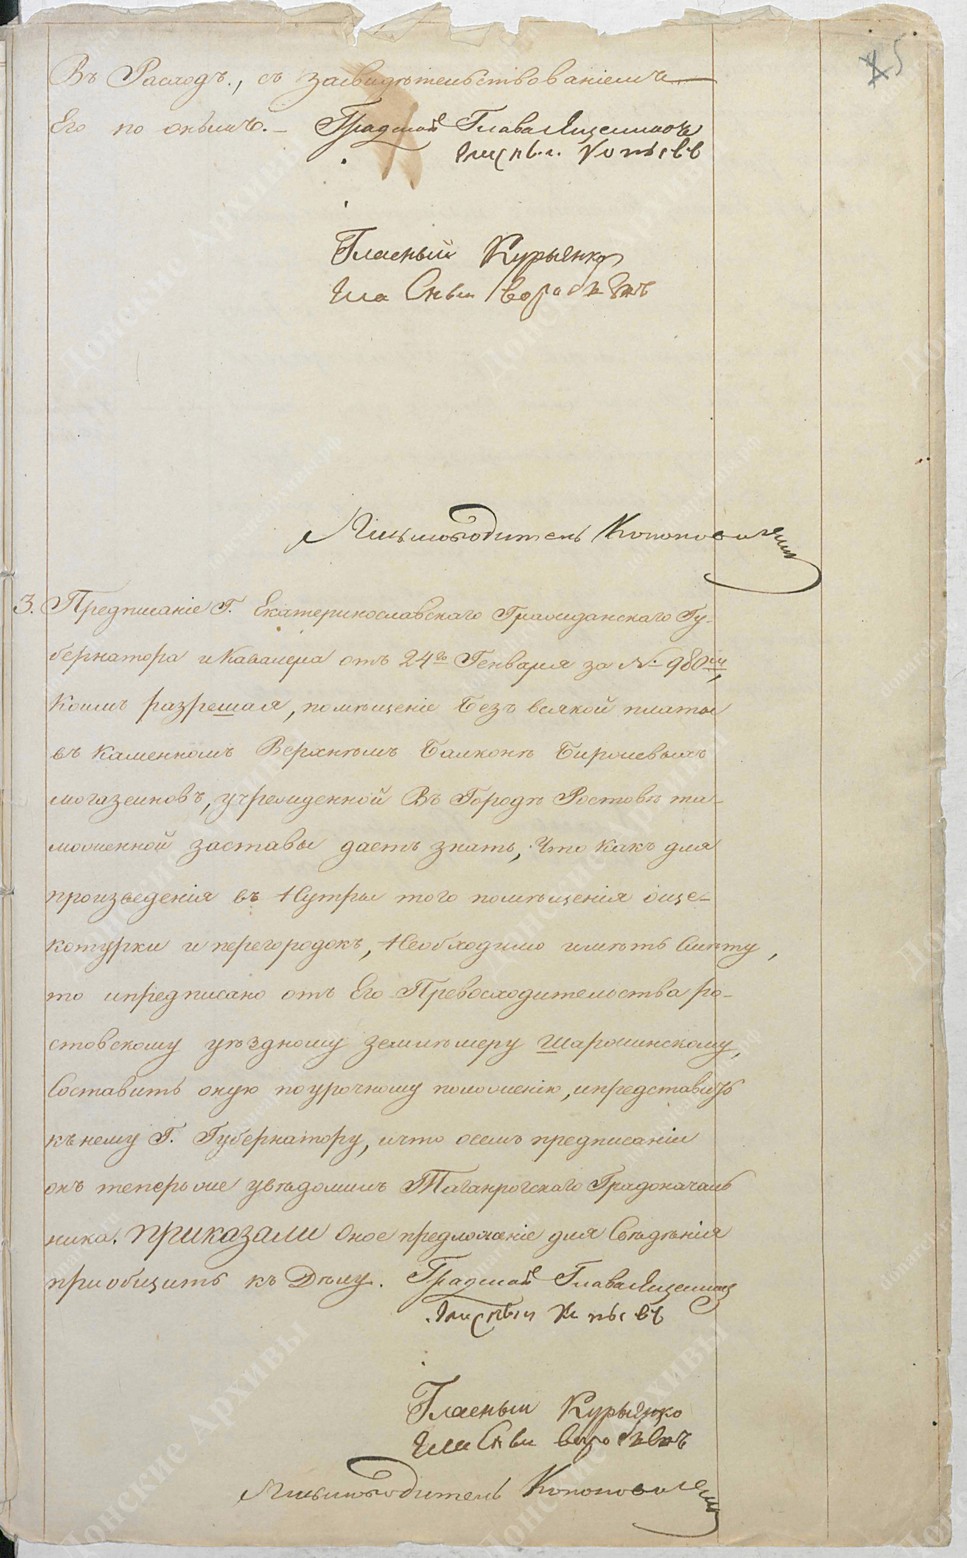 5
Въ Расходъ., съ засвидѣтельствованіемъ
Его по онымъ. – Градской Глава Ященковъ
Гласный Копыевъ
Гласный Курьянко
Гласный Воробьевъ
Письмоводитель Кононовъ
3. Предписаніе Г. Екатеринославскаго Гражданскаго Гу-
бернатора и Кавалера отъ 24го Генваря за №. 980мъ,
коимъ разрешая, помѣщеніе безъ всякой платы
въ каменномъ Верхнемъ Балконѣ Биржевыхъ
могазеиновъ, учрежденной въ Городѣ Ростовѣ та-
моженной заставы даетъ знать, что какъ для
произведенія въ нутры того помѣщенія още-
котурки и перегородокъ, необходимо имѣть смѣту,
то ипредписано отъ Его Превосходительства ро-
стовскому уѣздному землемеру Шарошинскому,
Составить оную поурочному положенію, ипредставить
къ нему Г. Губернатору, ичто осемъ предписаніи
онъ теперь же увѣдомилъ Таганрогскаго Градоначаль
ника. приказали Оное предложеніе для Свѣдѣнія
приобщить къ Дѣлу. Градской Глава Ященковъ
Гласный Копыевъ
Гласный Курьянко
Гласный Воробьевъ
Письмоводитель Кононовъ
Донские Архивы
донскиеархивы.рф
donarch.ru